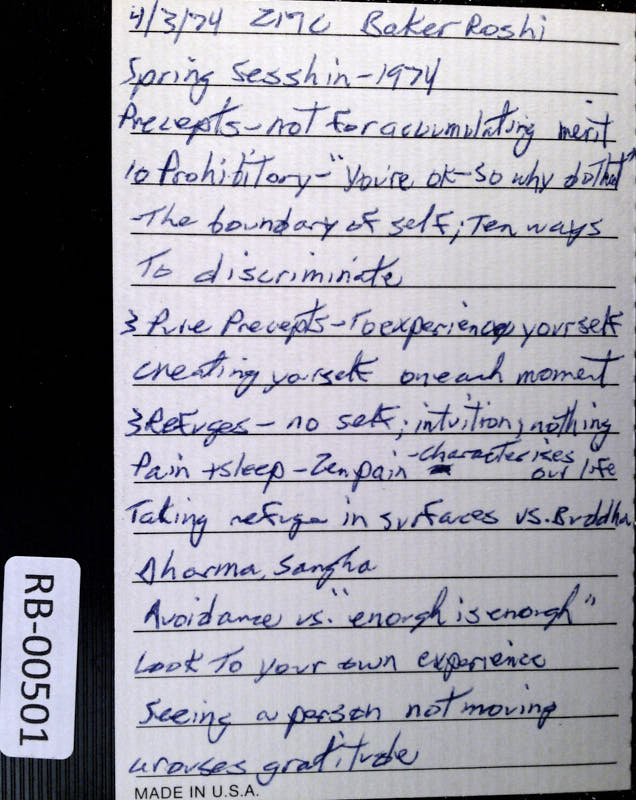 4/3/74 ZMC Baker Roshi
Spring Sesshin-1974
Precepts-not for accumulating merit
10 Prohibitory-"You're ok-So why do that"
-The boundary of self; Ten ways
To discriminate
3 Pure Precepts-To experience yourself
creating yourself on each moment
3 Refuges- no self; intuition; nothing
Pain + sleep-Zen pain -characterises our life
Taking refuge in surfaces vs. Buddha,
Dharma, Sangha
Avoidance vs. "enough is enough"
Look To your own experience
Seeing a person not moving
arouses gratitude
MADE IN U.S.A.
RB-00501